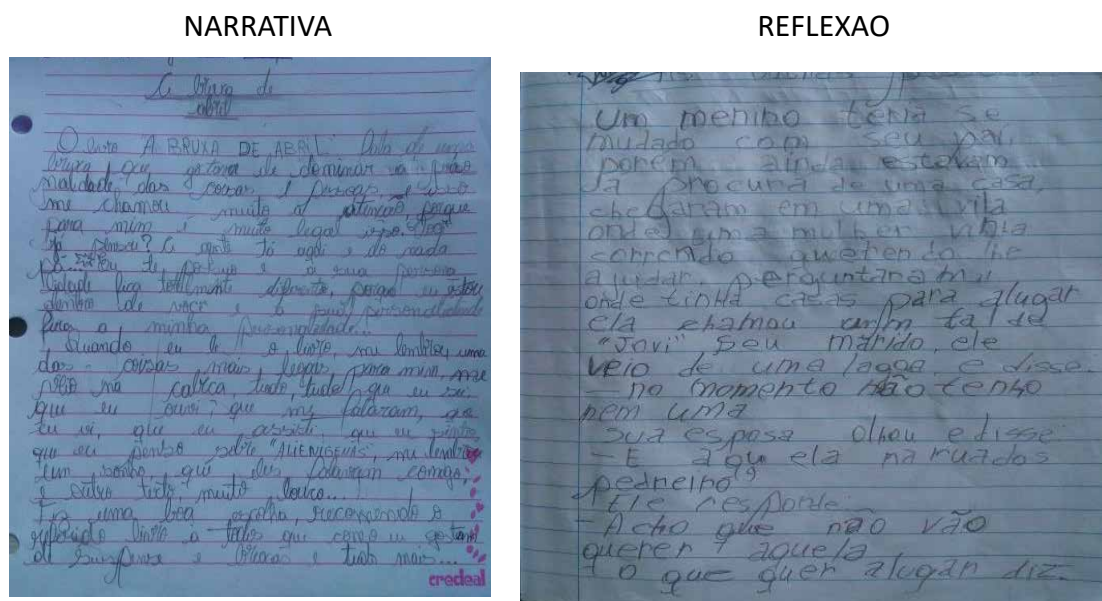 NARRATIVA
A bruxa de
abril
O livro A BRUXA DE ABRIL: fala de uma
bruxa, que gostava de dominar a
nalidade das coisas e pessoas, e isso
me chamou muito a atenção, porque
para mim é muito legal isso.
já pensou? A gente tá aqui e do nada
pá... eu te e a sua persona
lidade fica totalmente diferente, porque eu estou
dentro de você e a sua personalidade
fica a minha personalidade...
Quando eu li o livro, me lembrou uma
das coisas mais legais para mim, me
veio na cabeça, tudo, tudo que eu sei
que eu ouvi? que me falaram, que
eu vi, que eu assisti, que eu sinto,
que eu penso sobre "ALIENIGENAS", me lembrou
um sonho que eles falavam comigo,
e outro muito louco...
Foi uma boa escolha, recomendo o
referido livro a todos que como eu gostam
de suspense e bruxas e tudo mais...
credeal
REFLEXAO
Um menino teria se
mudado com seu pai,
porem ainda estavam
da procura de uma casa,
chegaram em uma vila
onde uma mulher vinha
correndo querendo lhe
ajudar, perguntaram
onde tinha casas para alugar
ela chamou um tal de
"Jovi" seu marido, ele
veio de uma lagoa e disse.
- no momento não tenho
nem uma
- Sua esposa olhou e disse
- E aquela na rua dos
pedreiho?
- Ele responde
- Acho que não vão
querer aquela
- O que quer alugar diz.